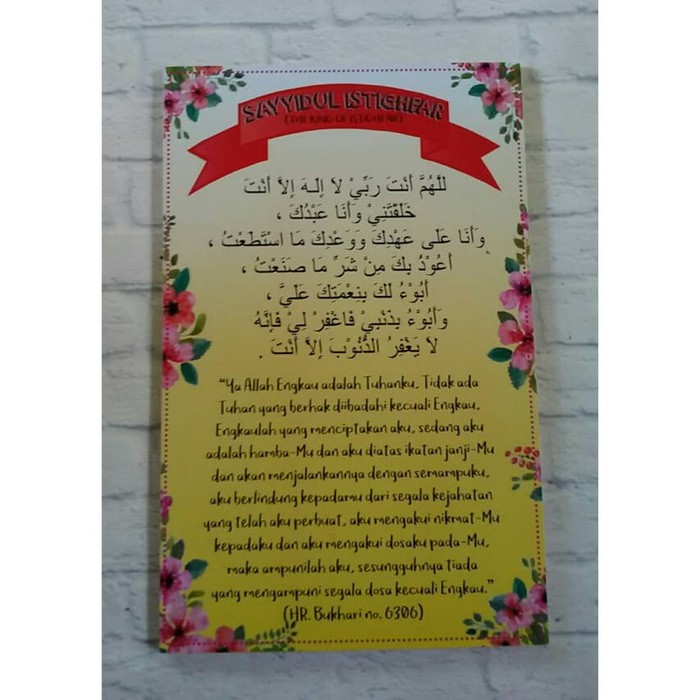 SAYYIDUL ISTIGHFAR
(THE KING OF ISTIGHFAR)
للَّهُمَّ أَنْتَ رَبِّيْ لاَ إِلـهَ إِلاَّ أَنْتَ
خَلَقْتَنِيْ وَأَنَا عَبْدُكَ ،
وَأَنَا عَلَى عَهْدِكَ وَوَعْدِكَ مَا اسْتَطَعْتُ ،
أَعُوْذُ بِكَ مِنْ شَرِّ مَا صَنَعْتُ ،
أَبُوْءُ لَكَ بِنِعْمَتِكَ عَلَيَّ ،
وَأَبُوْءُ بِذَنْبِيْ فَاغْفِرْ لِيْ فَإِنَّهُ
لاَ يَغْفِرُ الذُّنُوْبَ إِلاَّ أَنْتَ .
“Ya Allah Engkau adalah Tuhanku, Tidak ada
Tuhan yang berhak diibadahi kecuali Engkau,
Engkaulah yang menciptakan aku, sedang aku
adalah hamba-Mu dan aku diatas ikatan janji-Mu
dan akan menjalankannya dengan semampuku,
aku berlindung kepadamu dari segala kejahatan
yang telah aku perbuat, aku mengakui nikmat-Mu
kepadaku dan aku mengakui dosaku pada-Mu,
maka ampunilah aku, sesungguhnya tiada
yang mengampuni segala dosa kecuali Engkau.”
(HR. Bukhari no. 6306)